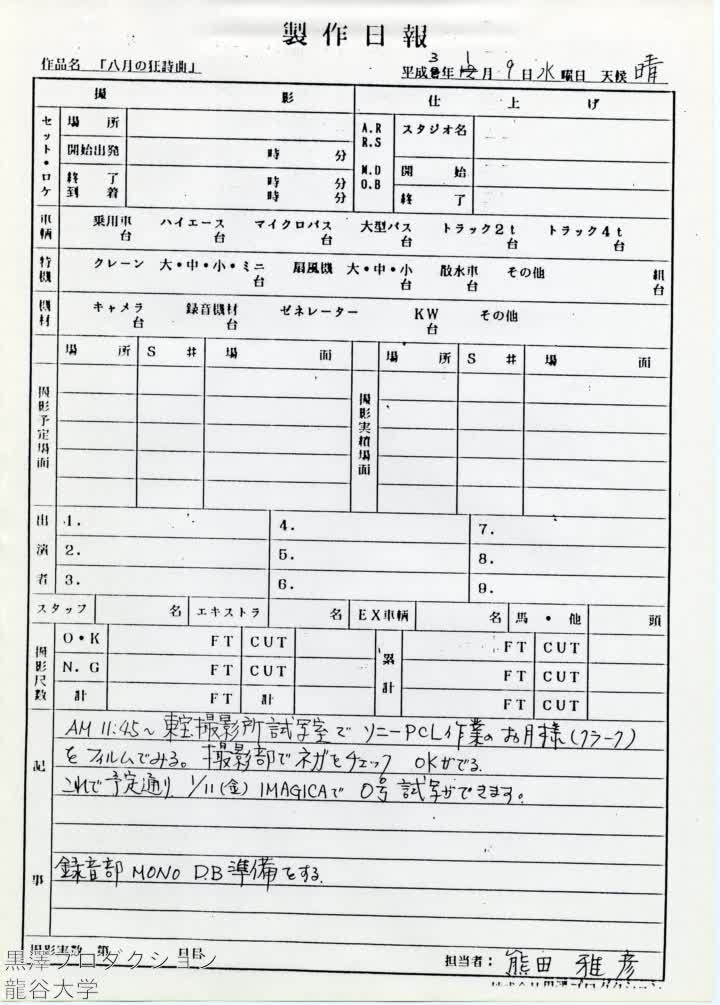 製作日報
作品名 「八月の狂詩曲」 平成3年1月9日水曜日 天候 晴
撮 影 仕 上 げ
セット・ロケ 場 所 A.R R.S M.D D.B スタジオ名
開始出発 時 分 開 始
終 了 時 分 終 了
到 着 時 分
車輌 乗用車 台 ハイエース 台 マイクロバス 台 大型バス 台 トラック2t 台 トラック4t 台
特機 クレーン 大・中・小・ミニ 台 扇風機 大・中・小 台 散水車 台 その他 組 台
機材 キャメラ 台 録音機材 台 ゼネレーター KW 台 その他
撮影予定場面 場 所 S # 場 面 撮影実績場面 場 所 S # 場 面
出演者 1. 4. 7.
2. 5. 8.
3. 6. 9.
スタッフ 名 エキストラ 名 EX車輌 名 馬・他 頭
撮影尺数 O・K FT CUT 累計 FT CUT
N.G FT CUT FT CUT
計 FT 計 FT CUT
記事
AM 11:45~ 東宝撮影所試写室で ソニーPCL作業のお月様(クラーク)
をフィルムでみる。撮影部でネガをチェック OKがでる
これで予定通り 1/11(金) IMAGICAで 0号試写ができます。
録音部 MONO D.B 準備をする
撮影実数 第 日目
担当者: 熊田 雅彦
株式会社黒澤プロダクション
黒澤プロダクション
龍谷大学